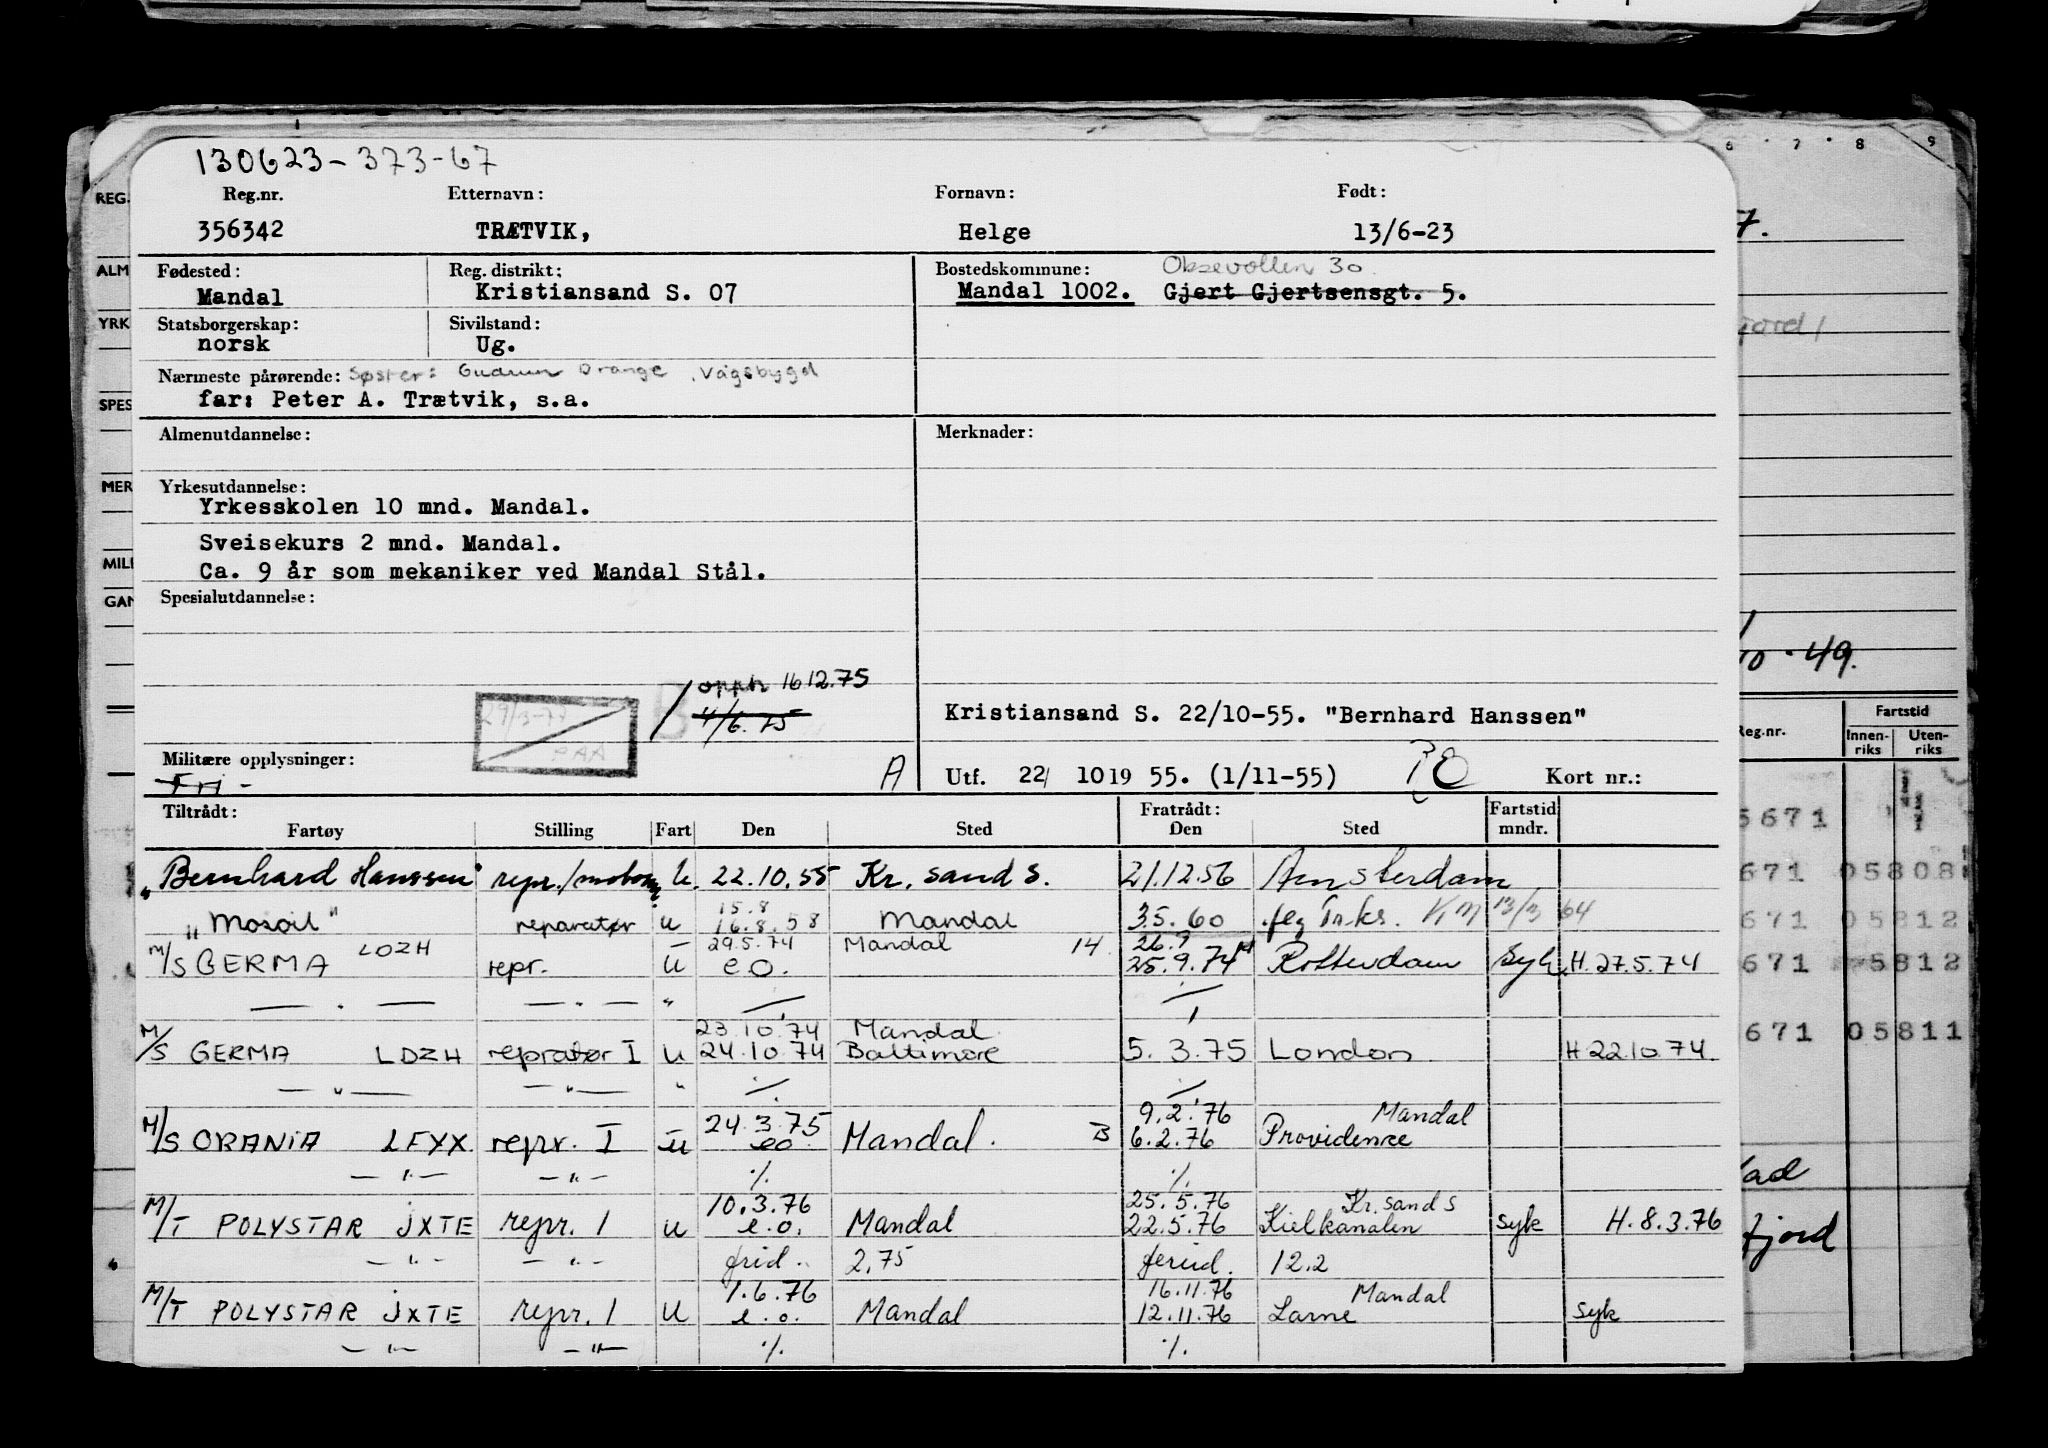 130623-373-67
Reg.nr. Etternavn: Fornavn: Født:
356342 TRÆTVIK, Helge 13/6-23
Fødested: Reg. distrikt: Bostedskommune: 30
Mandal Kristiansand S. 07 Mandal 1002. Gjert Gjertsensgt. 5.
Statsborgerskap: Sivilstand:
norsk Ug.
Nærmeste pårørende: Søster: Gudrun Orange, Vågsbygd
far: Peter A. Trætvik, s.a.
Almenutdannelse: Merknader:
Yrkesutdannelse:
Yrkesskolen 10 mnd. Mandal.
Sveisekurs 2 mnd. Mandal.
Ca. 9 år som mekaniker ved Mandal Stål.
Spesialutdannelse:
opph 16 12.75
4/6.75
Kristiansand S. 22/10-55. "Bernhard Hanssen"
Militære opplysninger:
Fri -
A Utf. 22/ 10 19 55. (1/11-55) Kort nr.:
Tiltrådt: Fratrådt: Fartstid
Fartøy Stilling Fart Den Sted Den Sted mndr.
"Bernhard Hanssen" repr./motorm. U. 22.10.55 Kr. sand S. 21.12.56 Amsterdam
15.8
"Mosoil" reparatør u 16.8.58 Mandal 3.5.60 13/3 64
29.5.74 Mandal 14 26.9
M/S GERMA LDZH repr. U e.o. 25.9.74 Rotterdam Syk H. 27.5.74
— " — — " — " %
23.10.74 Mandal
M/S GERMA LDZH repratør I U 24.10.74 Baltimore 5.3.75 London H 22.10.74
— " — — " — " % %
24.3.75 9.2.76 Mandal
M/S ORANIA LFYX repr. I U eo. Mandal. B 6.2.76 Providence
— " — — " — % %
10.3.76 25.5.76 Kr. sand S
M/T POLYSTAR JXTE repr. 1 U e.o. Mandal 22.5.76 Kielkanalen syk H. 8.3.76
— " — — " — 2.75 12.2
1.6.76 16.11.76 Mandal
M/T POLYSTAR JXTE repr. 1 U e.o. Mandal 12.11.76 Larne syk
— " — — " — % %
REG.
ALM
YRK
SPES
MER
MILI
GAN
6 7 8 9
7.
10.49.
Reg.nr. Fartstid
Innen-riks Uten-riks
5671
671 05808
671 05812
671 5812
671 05811
fjord